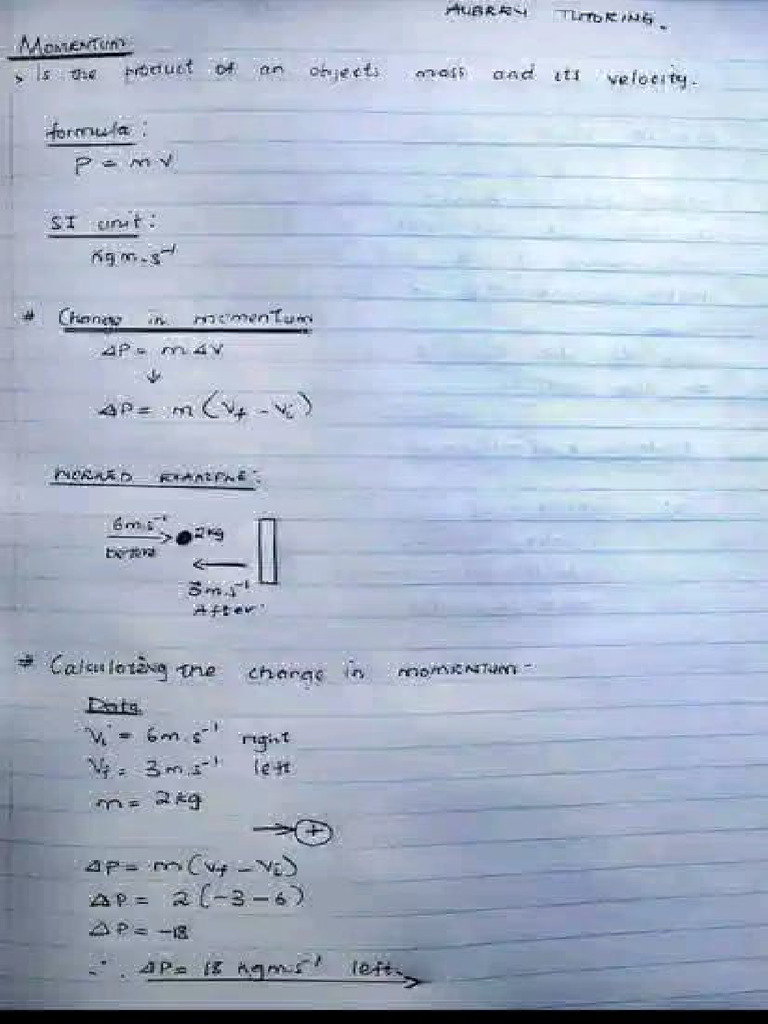 AUBREY TUTORING.
MOMENTUM
> Is the product of an objects mass and its velocity.
formula:
P = mv
SI unit:
kgm.s⁻¹
# Change in momentum
ΔP = mΔV
↓
ΔP = m(Vf - Vi)
WORKED EXAMPLE:
6m.s⁻¹ 2kg
before
3m.s⁻¹
After
# Calculating the change in momentum-
Data
Vi = 6m.s⁻¹ right
Vf = 3m.s⁻¹ left
m = 2kg
→ +
ΔP = m(Vf - Vi)
ΔP = 2(-3-6)
ΔP = -18
∴ ΔP = 18 kgm.s⁻¹ left.